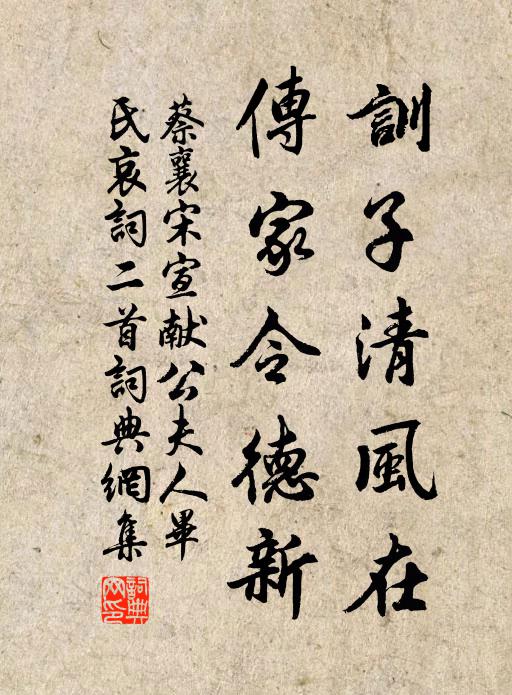 訓子清風在
傳家令德新
蔡襄宋宣献公夫人畢
氏哀詞二首詞典網集